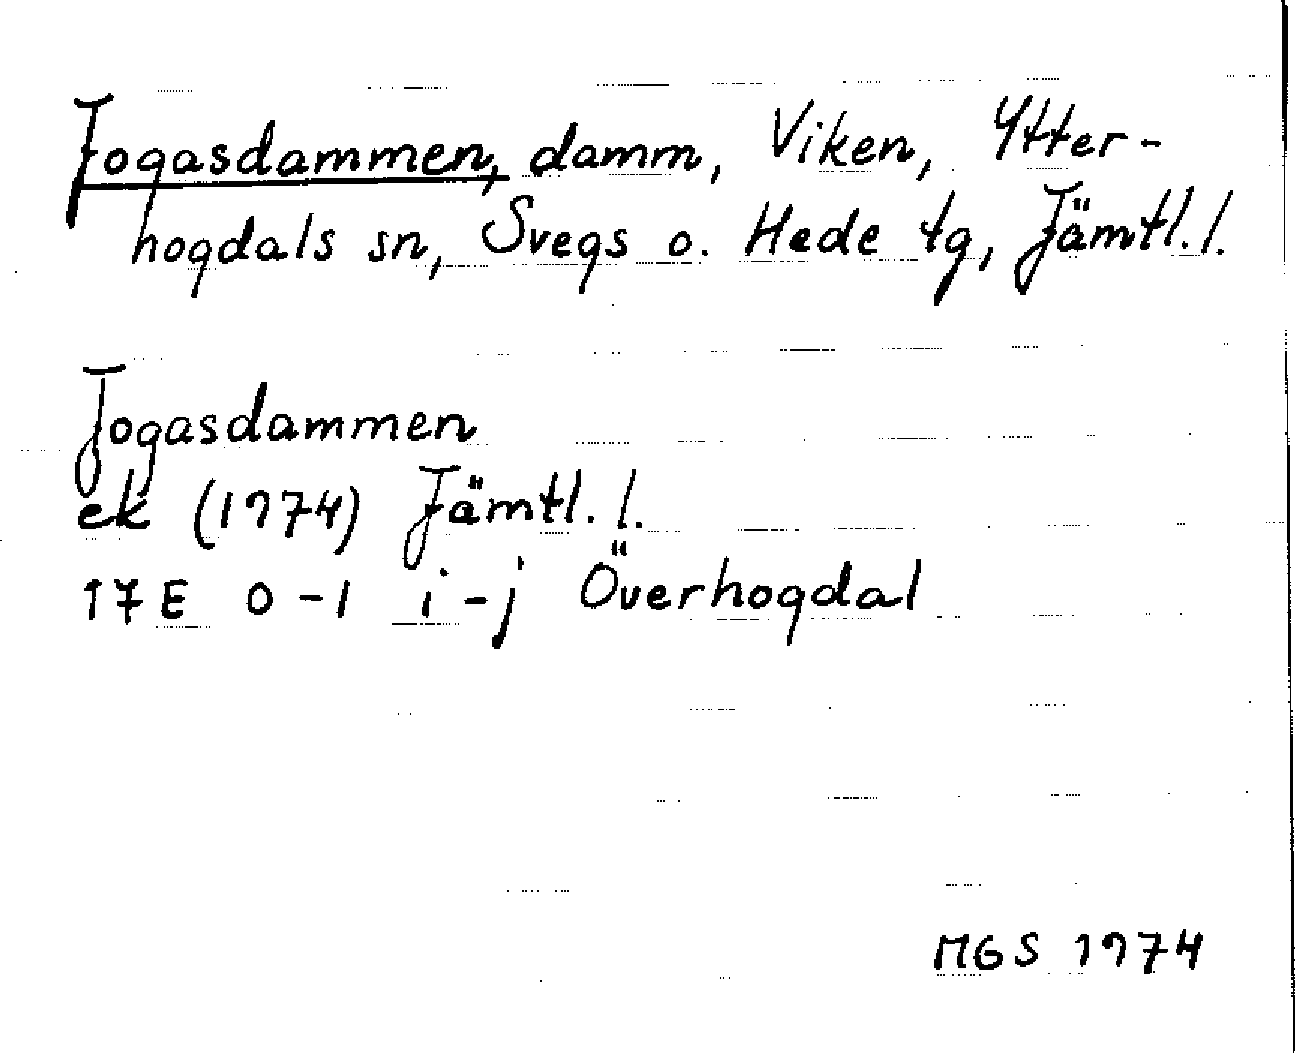 Jogasdammen, damm, Viken, Ytter-
hogdals sn, Svegs o. Hede tg, Jämtl. l.
Jogasdammen
ek (1974) Jämtl. l.
17E 0-1 i-j Överhogdal
MGS 1974